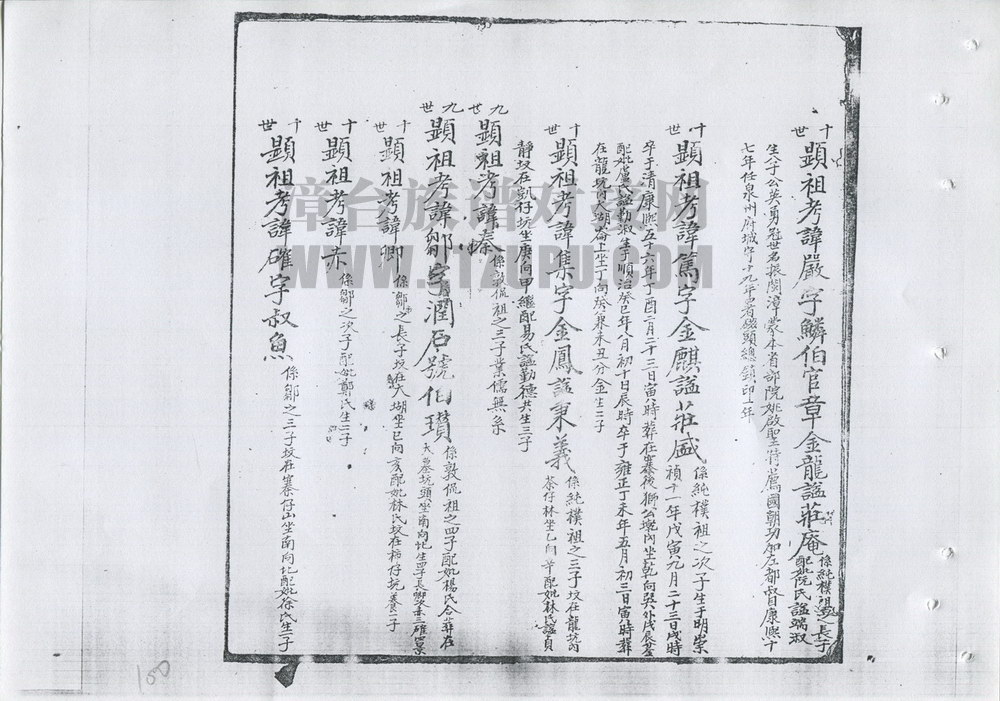 十世 顯祖考諱嚴字鱗伯官章金龍諡莊庵 係純樸祖之長子配妣阮氏諡端淑
生八子公英勇冠世名振閩漳蒙本省部院姚啟聖將薦國朝功加左都督康熙十
七年任泉州府城守十九年署磁頭總鎮印七年
十世 顯祖考諱篤字金麒諡莊盛 係純樸祖之次子生于明崇禎十一年戊寅九月二十三日戌時
卒于清康熙五十六年丁酉二月二十三日寅時葬在寨後獅公墩內坐乾向巽外戌辰岔
配妣盧氏諡勤淑生于順治癸巳年八月初十日辰時卒于雍正丁未年五月初三日寅時葬
在龍坑貝湖崙上坐丁向癸兼未丑分金生三子
十世 顯祖考諱集字金鳳諡秉義 係純樸祖之三子坟在龍坑茶仔林坐乙向辛配妣林氏諡貞
靜坟在凱仔坑坐庚向甲繼配易氏諡勤德共生三子
九世 顯祖考諱秦 係敦侃祖之三子業儒無糸
九世 顯祖考諱鄒字潤石號伯璜 係敦侃祖之四子配妣楊氏合葬在大墓坑頭坐南向北生四子
十世 顯祖考諱卿 係鄒之長子坟在大湖坐巳向亥配妣林氏坟在柿仔坑養子
十世 顯祖考諱赤 係鄒之次子配妣鄭氏生二子
十世 顯祖考諱確字叔魚 係鄒之三子坟在寨仔山坐南向北配妣徐氏生二子
漳台族谱对接网
100